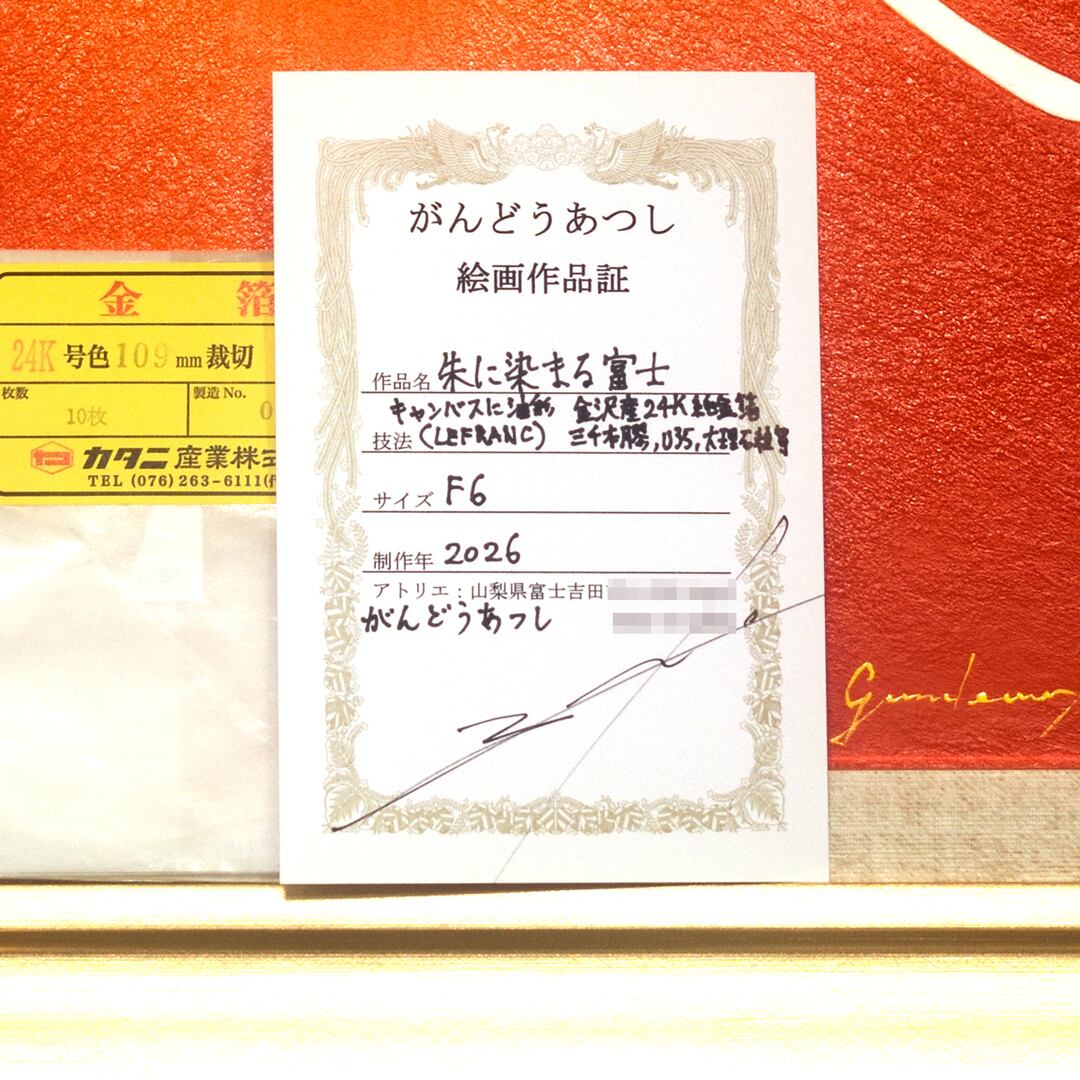 がんどうあつし
絵画作品証
作品名 朱に染まる富士
キャンバスに油彩 金沢産24K純金箔
技法 (LEFRANC) 三千本膠,035,大理石粒等
サイズ F6
制作年 2026
アトリエ:山梨県富士吉田
がんどうあつし
金箔
24K号色109mm裁切
枚数 製造No.
10枚 0
カタニ産業株式
TEL (076)263-6111(代